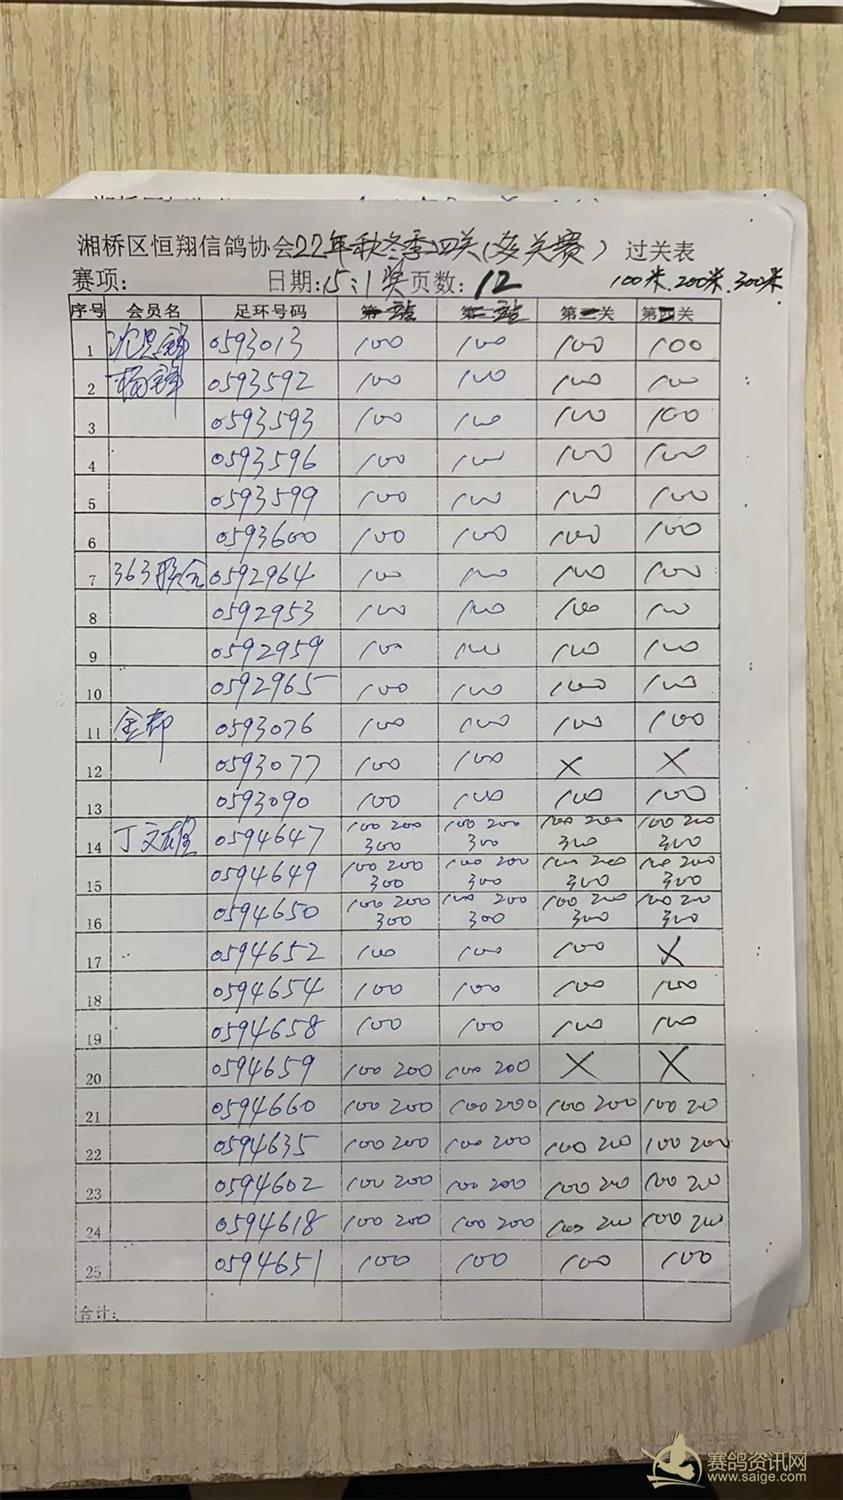 湘桥区恒翔信鸽协会22年秋冬季四关(多关赛) 过关表
赛项: 日期:15:1奖 页数:12 100米.200米.300米
序号 会员名 足环号码 第一站 第二站 第三关 第四关
1 0593013 100 100 100 100
2 杨锦 0593592 100 100 100 100
3 0593593 100 100 100 100
4 0593596 100 100 100 100
5 0593599 100 100 100 100
6 0593600 100 100 100 100
7 363联合 0592964 100 100 100 100
8 0592953 100 100 100 100
9 0592959 100 100 100 100
10 0592965 100 100 100 100
11 金都 0593076 100 100 100 100
12 0593077 100 100 × ×
13 0593090 100 100 100 100
14 丁文雄 0594647 100 200 300 100 200 300 100 200 300 100 200 300
15 0594649 100 200 300 100 200 300 100 200 300 100 200 300
16 0594650 100 200 300 100 200 300 100 200 300 100 200 300
17 0594652 100 100 100 ×
18 0594654 100 100 100 100
19 0594658 100 100 100 100
20 0594659 100 200 100 200 × ×
21 0594660 100 200 100 200 100 200 100 200
22 0594635 100 200 100 200 100 200 100 200
23 0594602 100 200 100 200 100 200 100 200
24 0594618 100 200 100 200 100 200 100 200
25 0594651 100 100 100 100
合计:
赛鸽资讯网
www.saige.com